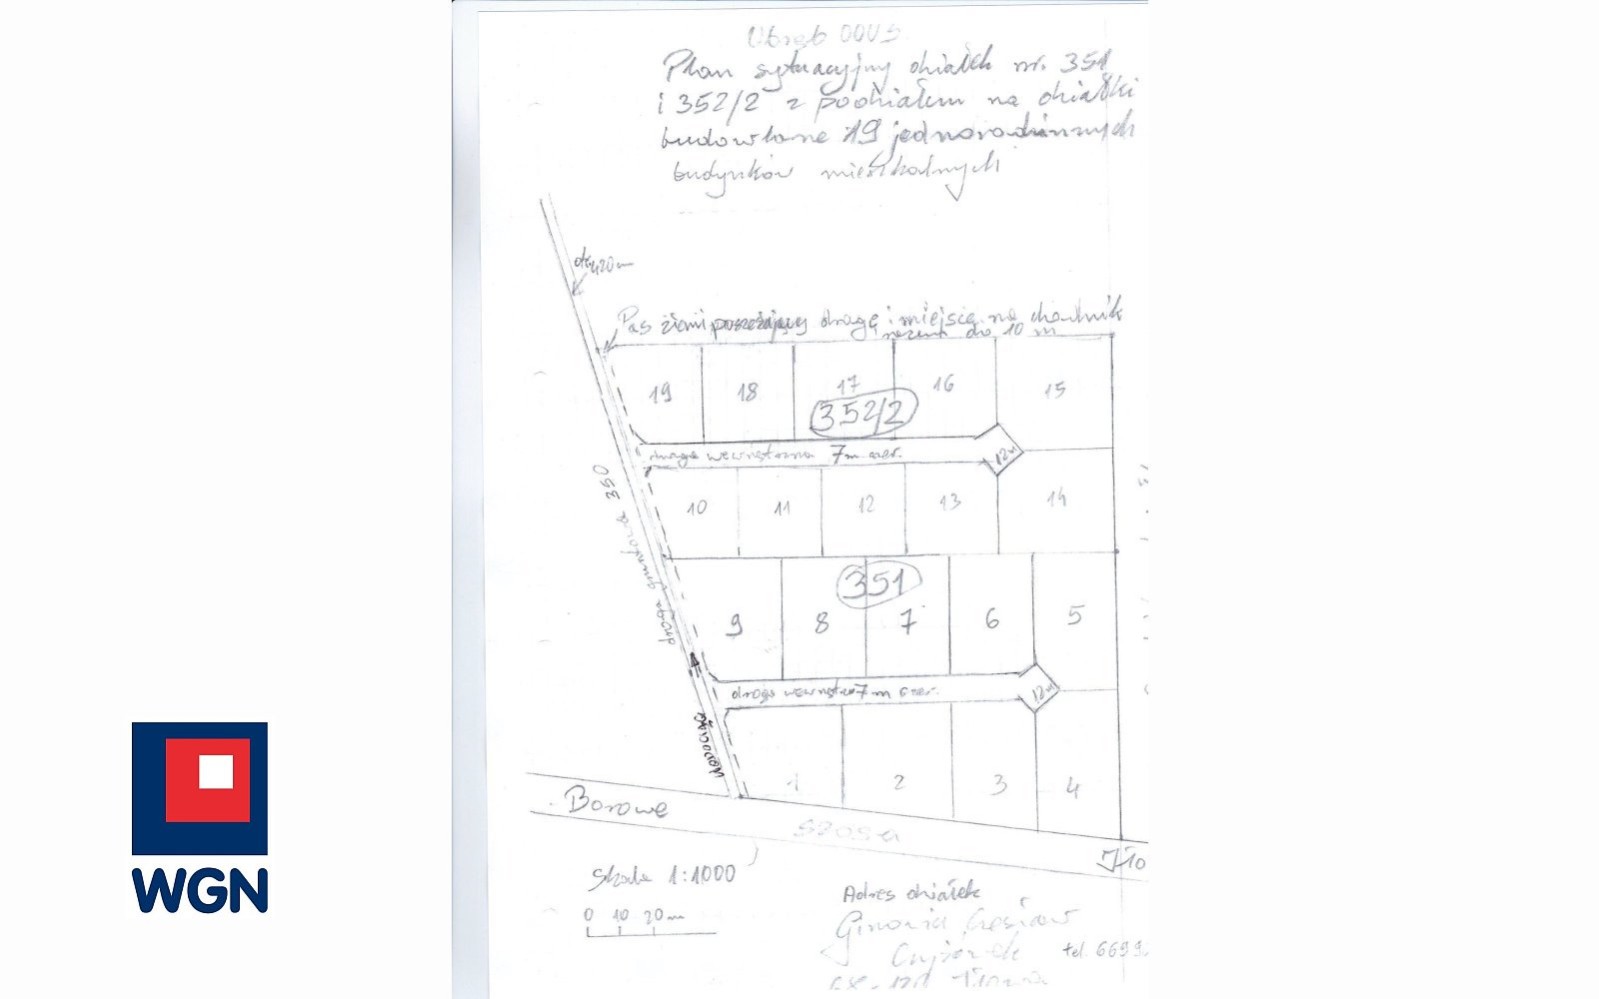 Obręb 0005
Plan sytuacyjny działek nr. 351
i 352/2 z podziałem na działki
budowlane 19 jednorodzinnych
budynków mieszkalnych
Pas ziemi poszerzający drogę i miejsce na chodnik
do 10 m
19 18 17 16 15
352/2
droga wewnętrzna 7m szer.
12m
10 11 12 13 14
droga gruntowa 350
351
9 8 7 6 5
droga 7m szer.
12m
1 2 3 4
Borowe
szosa
Skala 1:1000
0 10 20m
Adres działek
Gmina
tel. 669
WGN